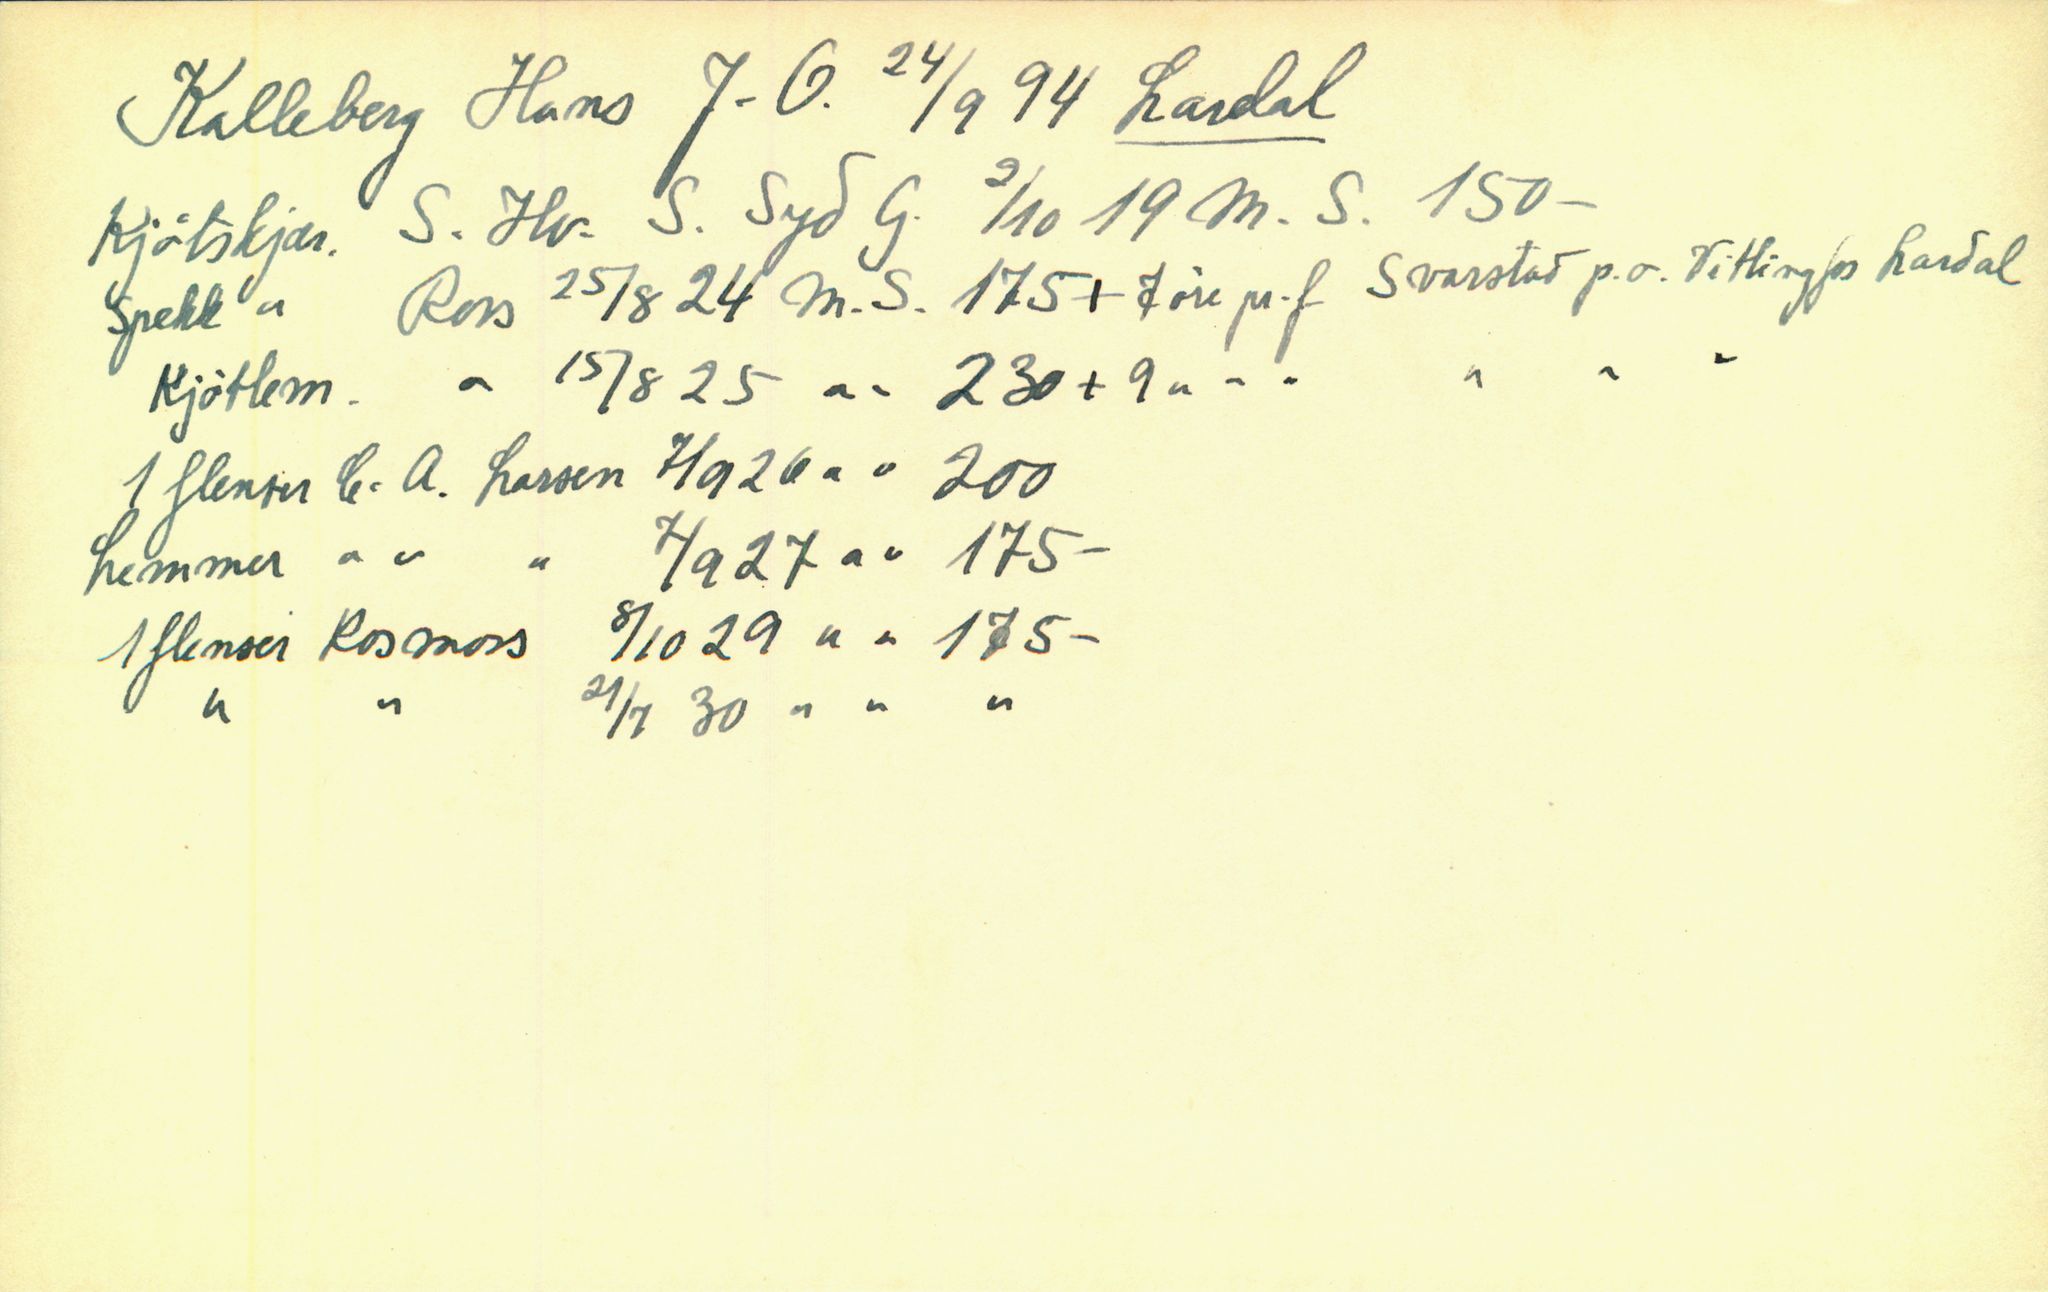 Kalleberg Hans J. O. 24/9 94 Lardal
Kjötskjær. S. Hv. S. Syd G. 2/10 19 M. S. 150-
Spekk " Ross 25/8 24 M. S. 175 + 7 öre pr. f Svarstad p.o. Vittingfos Lardal
Kjötlem. " 15/8 25 " " 230 + 9 " " " " " "
1 flenser C. A. Larsen 7/9 26 " " 200
Lemmer " " " 7/9 27 " " 175-
1 flenser Kosmos 8/10 29 " " 175-
" " 21/7 30 " " "